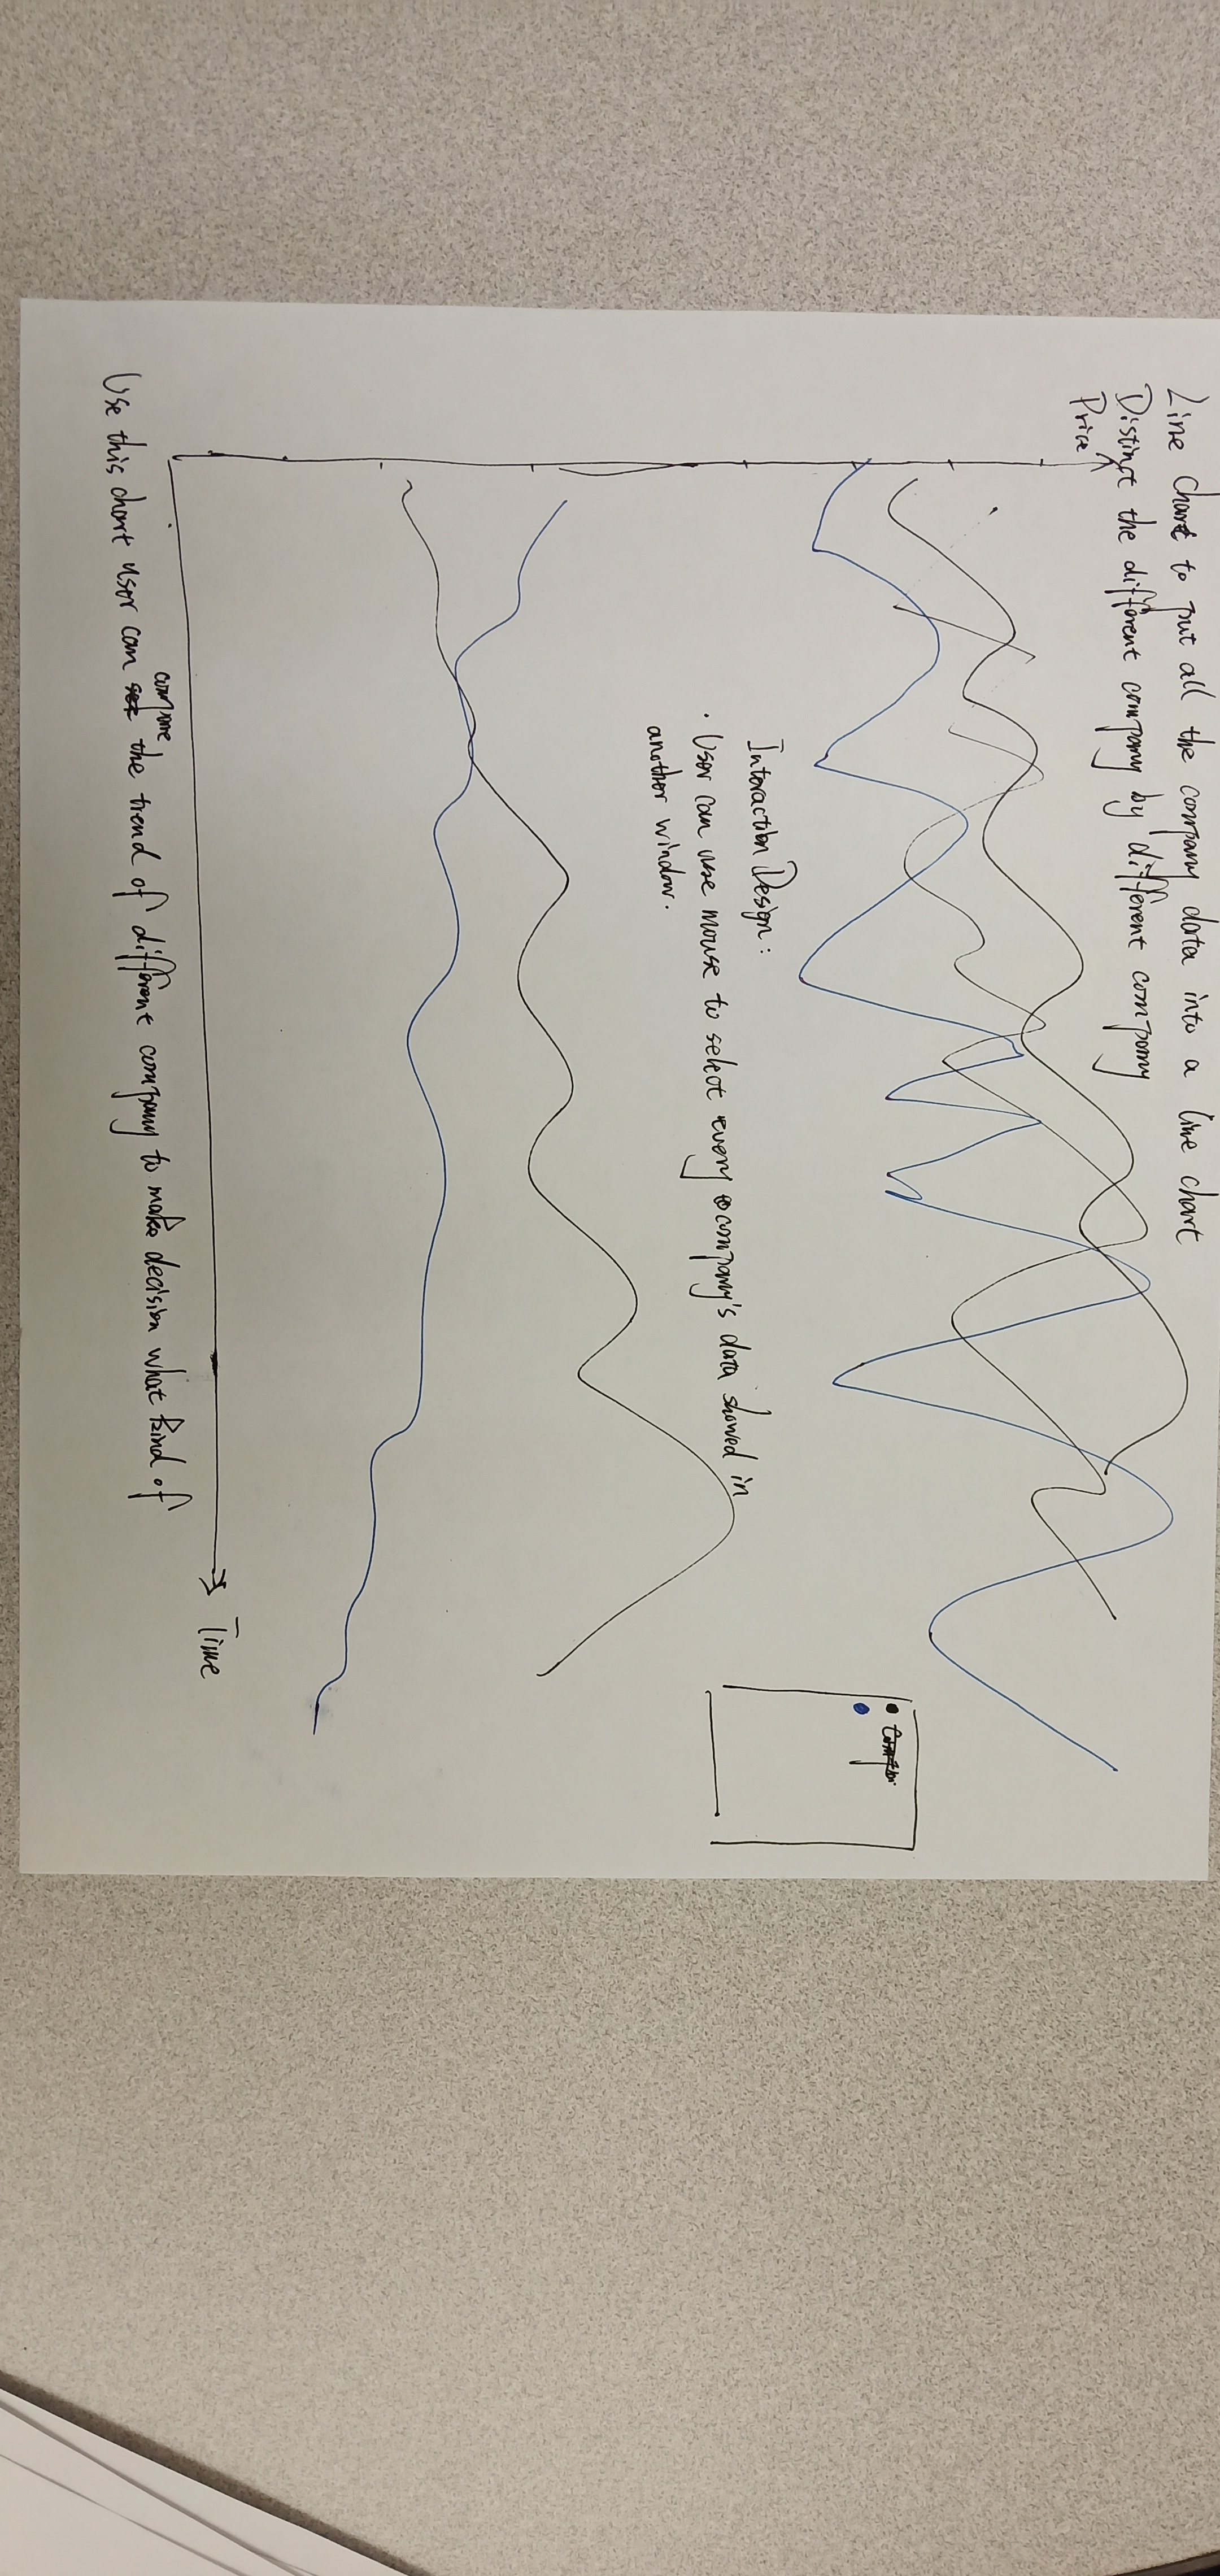 Line chart to put all the company data into a line chart
Distinct the different company by different company
Price
Interaction Design:
· User can use mouse to select every company's data showed in
another window.
Time
compare
Use this chart user can the trend of different company to make decision what kind of